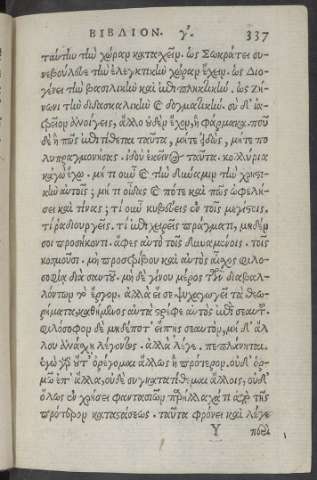 ΒΙΒΛΙΟΝ. γ. 337
ταύτην τὴν χώραν καταχεῖν. ὡς Σωκράτει συ‐
νεβούλευε τὴν ἐλεγκτικὴν χώραν ἔχειν. ὡς Διο‐
γένει τὴν βασιλικὴν καὶ ἐπιπληκτικήν. ὡς Ζή‐
νωνι τὴν διδασκαλικὴν καὶ δογματικήν. σὺ δ' ἰα‐
τρεῖον ἀνοίγεις, ἄλλο οὐδὲν ἔχων, ἢ φάρμακα. ποῦ
δὲ ἢ πῶς ἐπιτίθεται ταῦτα, μήτε εἰδὼς, μήτε πο
λυπραγμονήσας. ἰδοὺ ἐκεῖνος ταῦτα. κολλύρια
κἀγὼ ἔχω. μή τι οὖν καὶ τὴν δύναμιν τὴν χρηστι‐
κὴν αὐτοῖς; μή τι οἶδας καὶ πότε καὶ πῶς ὠφελή‐
σει καὶ τίνας; τί οὖν κυβεύεις ἐν τοῖς μεγίστοις.
τί ῥᾳδιουργεῖς. τί ἐπιχειρεῖς πράγματι, μηδέν
σοι προσήκοντι. ἄφες αὐτὸ τοῖς δυναμένοις. τοῖς
κοσμοῦσι. μὴ προστρίβου καὶ αὐτὸς αἶσχος φιλο‐
σοφίᾳ διὰ σαυτοῦ. μὴ δὲ γίνου μέρος τῶν διαβαλ‐
λόντων τὸ ἔργον. ἀλλὰ εἴ σε ψυχαγωγεῖ τὰ θεω‐
ρήματα, καθήμενος αὐτὰ στρέφε αὐτὸς ἐπὶ σεαυτοῦ.
φιλόσοφον δὲ μηδέποτ' εἴπῃς σεαυτόν, μὴ δ' ἄλ
λου ἀνάσχῃ λέγοντος. ἀλλὰ λέγε. πεπλάνηται.
ἐγὼ γὰρ οὔτ' ὀρέγομαι ἄλλως ἢ πρότερον. οὐδ' ὁρ‐
μῶ ἐπ' ἄλλα, οὐδὲ συγκατατίθεμαι ἄλλοις, οὐδ'
ὅλως ἐν χρήσει φαντασιῶν παρήλλαχά τι ἀπὸ τῆς
πρότερον καταστάσεως. ταῦτα φρόνει καὶ λέγε
Υ